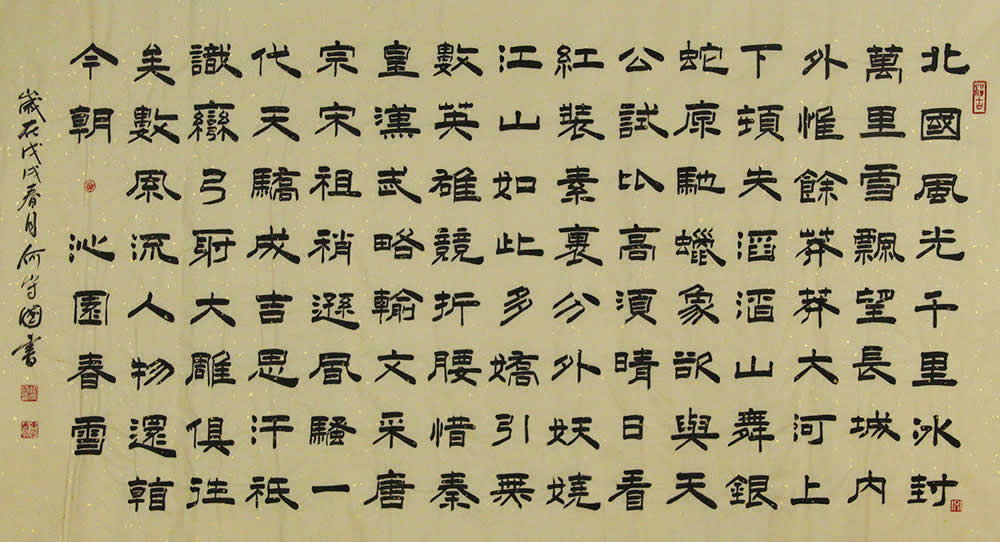 北國風光千里冰封
萬里雪飄望長城内
外惟餘莽莽大河上
下頓失滔滔山舞銀
蛇原馳蠟象欲與天
公試比高須晴日看
紅裝素裹分外妖嬈
江山如此多嬌引無
數英雄競折腰惜秦
皇漢武略輸文采唐
宗宋祖稍遜風騷一
代天驕成吉思汗祇
識彎弓射大雕俱往
矣數風流人物還看
今朝 沁園春雪
歲在戊戌春月何守國書